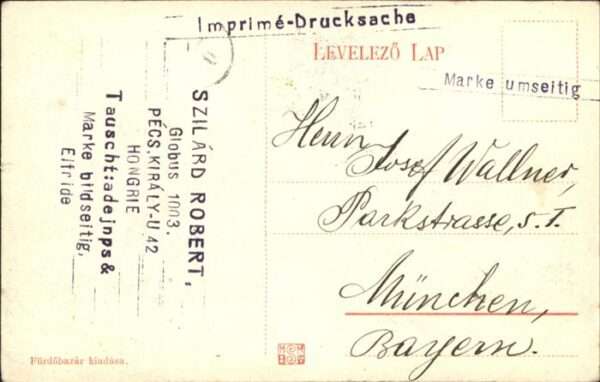 Imprimé-Drucksache
LEVELEZŐ LAP
Marke umseitig
SZILÁRD ROBERT,
Globus 1003.
PÉCS, KIRÁLY-U 42
HONGRIE
Tauscht:adejnps&
Marke bildseitig,
Elfride
Herrn
Josef Wallner,
Parkstrasse, 5. I.
München,
Bayern.
Fürdőbazár kiadása.